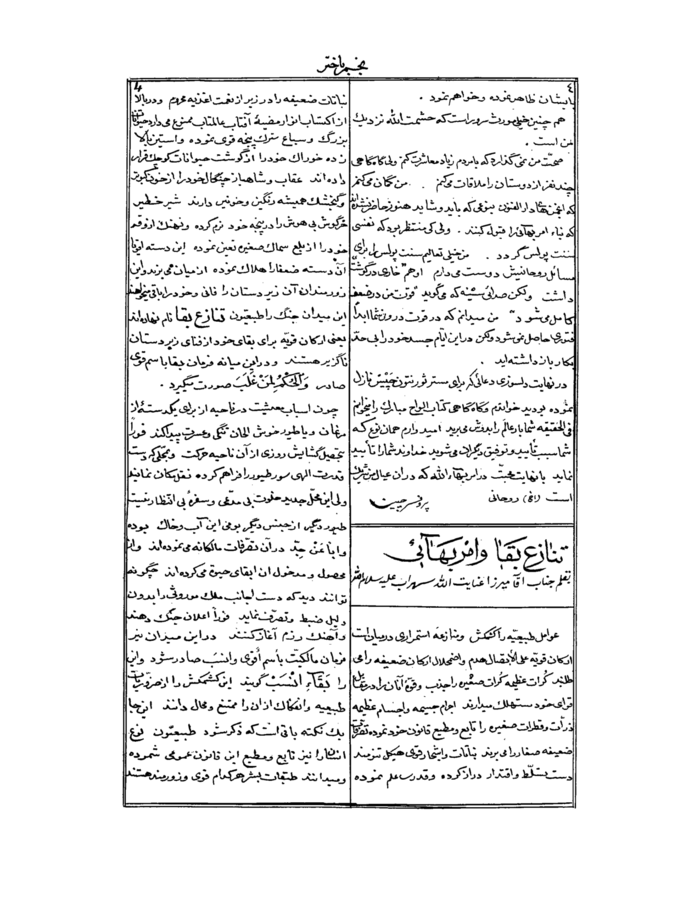 نجم باختر
٤
بایشان ظاهر نموده و خواهم نمود .
هم چنین خیلی مورث سرور است که حشمت الله نزدیک
من است .
صحّت من نمی گذارد که با مردم زیاد معاشرت کنم ولی گاه گاهی
چند نفر از دوستان را ملاقات میکنم . من گمان می کنم
که انجمنهای دار الفنون بنوعی که باید و شاید هنوز حاضر نشده اند
که نباء امر بهائی را قبول کنند . ولی که منتظر بود که نفسی
سنت پولس گردد . من خیلی تعالیم سنت پولس را برای
مسائل روحانیش دوست می دارم او هم "خاری در گوشت"
داشت ولکن صدائی شنید که می گوید "قوّت من در ضعف
کامل می شود" من میدانم که در قوت در روز شما ابداً
فتوری حاصل نمی شود ولکن در این ایام جسد خود را بی حدّ
بکار باز داشته اید .
در نهایت دلسوزی دعائی که برای مستر ثورنتون چیس نازل
نموده بودید خواندم و گاه گاهی کتاب الواح مبارک را میخوانم
فی الحقیقه شما بار عالم را بدوش می برید امیدوارم همان نوع که
شما سبب تأیید و توفیق دیگران می شوید خداوند شما را تأیید
نماید با نهایت محبّت در امر بهاء الله که دوران عیال من شریک
است (امّی) روحانی
پروفسر چینی
تنازع بقا و امر بهائی
بقلم جناب آقا میرزا عنایت الله سهراب علیه سلام الله
عوامل طبیعیّه را کشمکش و منازعه استمراری در میان است
ارکان قویّه علی الاتّصال هدم و اضمحلال ارکان ضعیفه را می
طلبند کُرات عظیمه کُرات صغیره را جذب و قوّهٔ آنان را در مقابل
قوای خود مستهلک میدارند اجرام جسیمه و اجسام عظیمه
ذرّات و قطرات صغیره را تابع و مطیع قانون خود نموده
ضعیفه صغار را می برند نباتات و اشجار قوی هیکل تنومند
دست تسلّط و اقتدار دراز کرده و قد بر علم نموده
نباتات ضعیفه را در زیر از نعمت اغذیه محروم و در بالا
از اکتساب انوار مضیئهٔ آفتاب عالمتاب ممنوع می دارد
بزرگ و سباع سترک پنجه قوی نموده و آستین بالا
زده خوراک خود را از گوشت حیوانات کوچک قرار
داده اند عقاب و شاهباز چنگال خود را از خون کبوتر
و گنجشک همیشه رنگین و خونین دارند شیر خطیر
خرگوش بی هوش را در پنجه خود نرم کرده و نهنگ
خود را از بلع سماک صغیره تعیین نموده این دسته اقویا
آن دسته ضعفا را هلاک نموده از میان می برند و این
زورمندان آن زیردستان را فانی و خود را باقی میخواهند
این میدان جنگ را طبیعیّون تنازع بقا نام نهاده اند
یعنی ارکان قویّه برای بقای خود از فنای زیردستان
ناگزیر هستند و در این میانه فرمان بقا باسم قوی
صادر و الحکم لمن غلب صورت میگیرد .
چون اسباب معیشت در ناحیه از برای یک دسته از
مرغان و یا طیور خوش الحان تنگی و عسرت پیدا کند فوراً
بتحصیل گشایش روزی از آن ناحیه حرکت و بمحلّی که دست
قدرت الهی سور طیور را فراهم کرده نقل مکان نمایند
ولی این محلّ جدید خلوت بی مدّعی و سفره بی انتظار نیست
طیور دیگر از جنس دیگر بومی این آب و خاک بوده
و اباً عن جدٍّ در آن تصرّفات مالکانه می نموده اند و از
محصول و مدخول آن ابقای حیوة می کرده اند چگونه
توانند دید که دست اجانب ملک موروثی را بدون
دلیل ضبط و تصرّف نماید فوراً اعلان جنگ دهند
و آهنگ رزم آغاز کنند در این میدان نیز
فرمان مالکیّت باسم أقوی و انسب صادر شود و این
را بقاء انسب گویند این کشمکش را از ضروریّات
طبیعیه و انفکاک از آن را ممتنع و محال دانند این جا
یک نکته باقی است که ذکر شود طبیعیّون نوع
انسان را نیز تابع و مطیع این قانون عمومی شمرده
و میدانند طبقات بشر هر کدام قوی و زورمند هستند